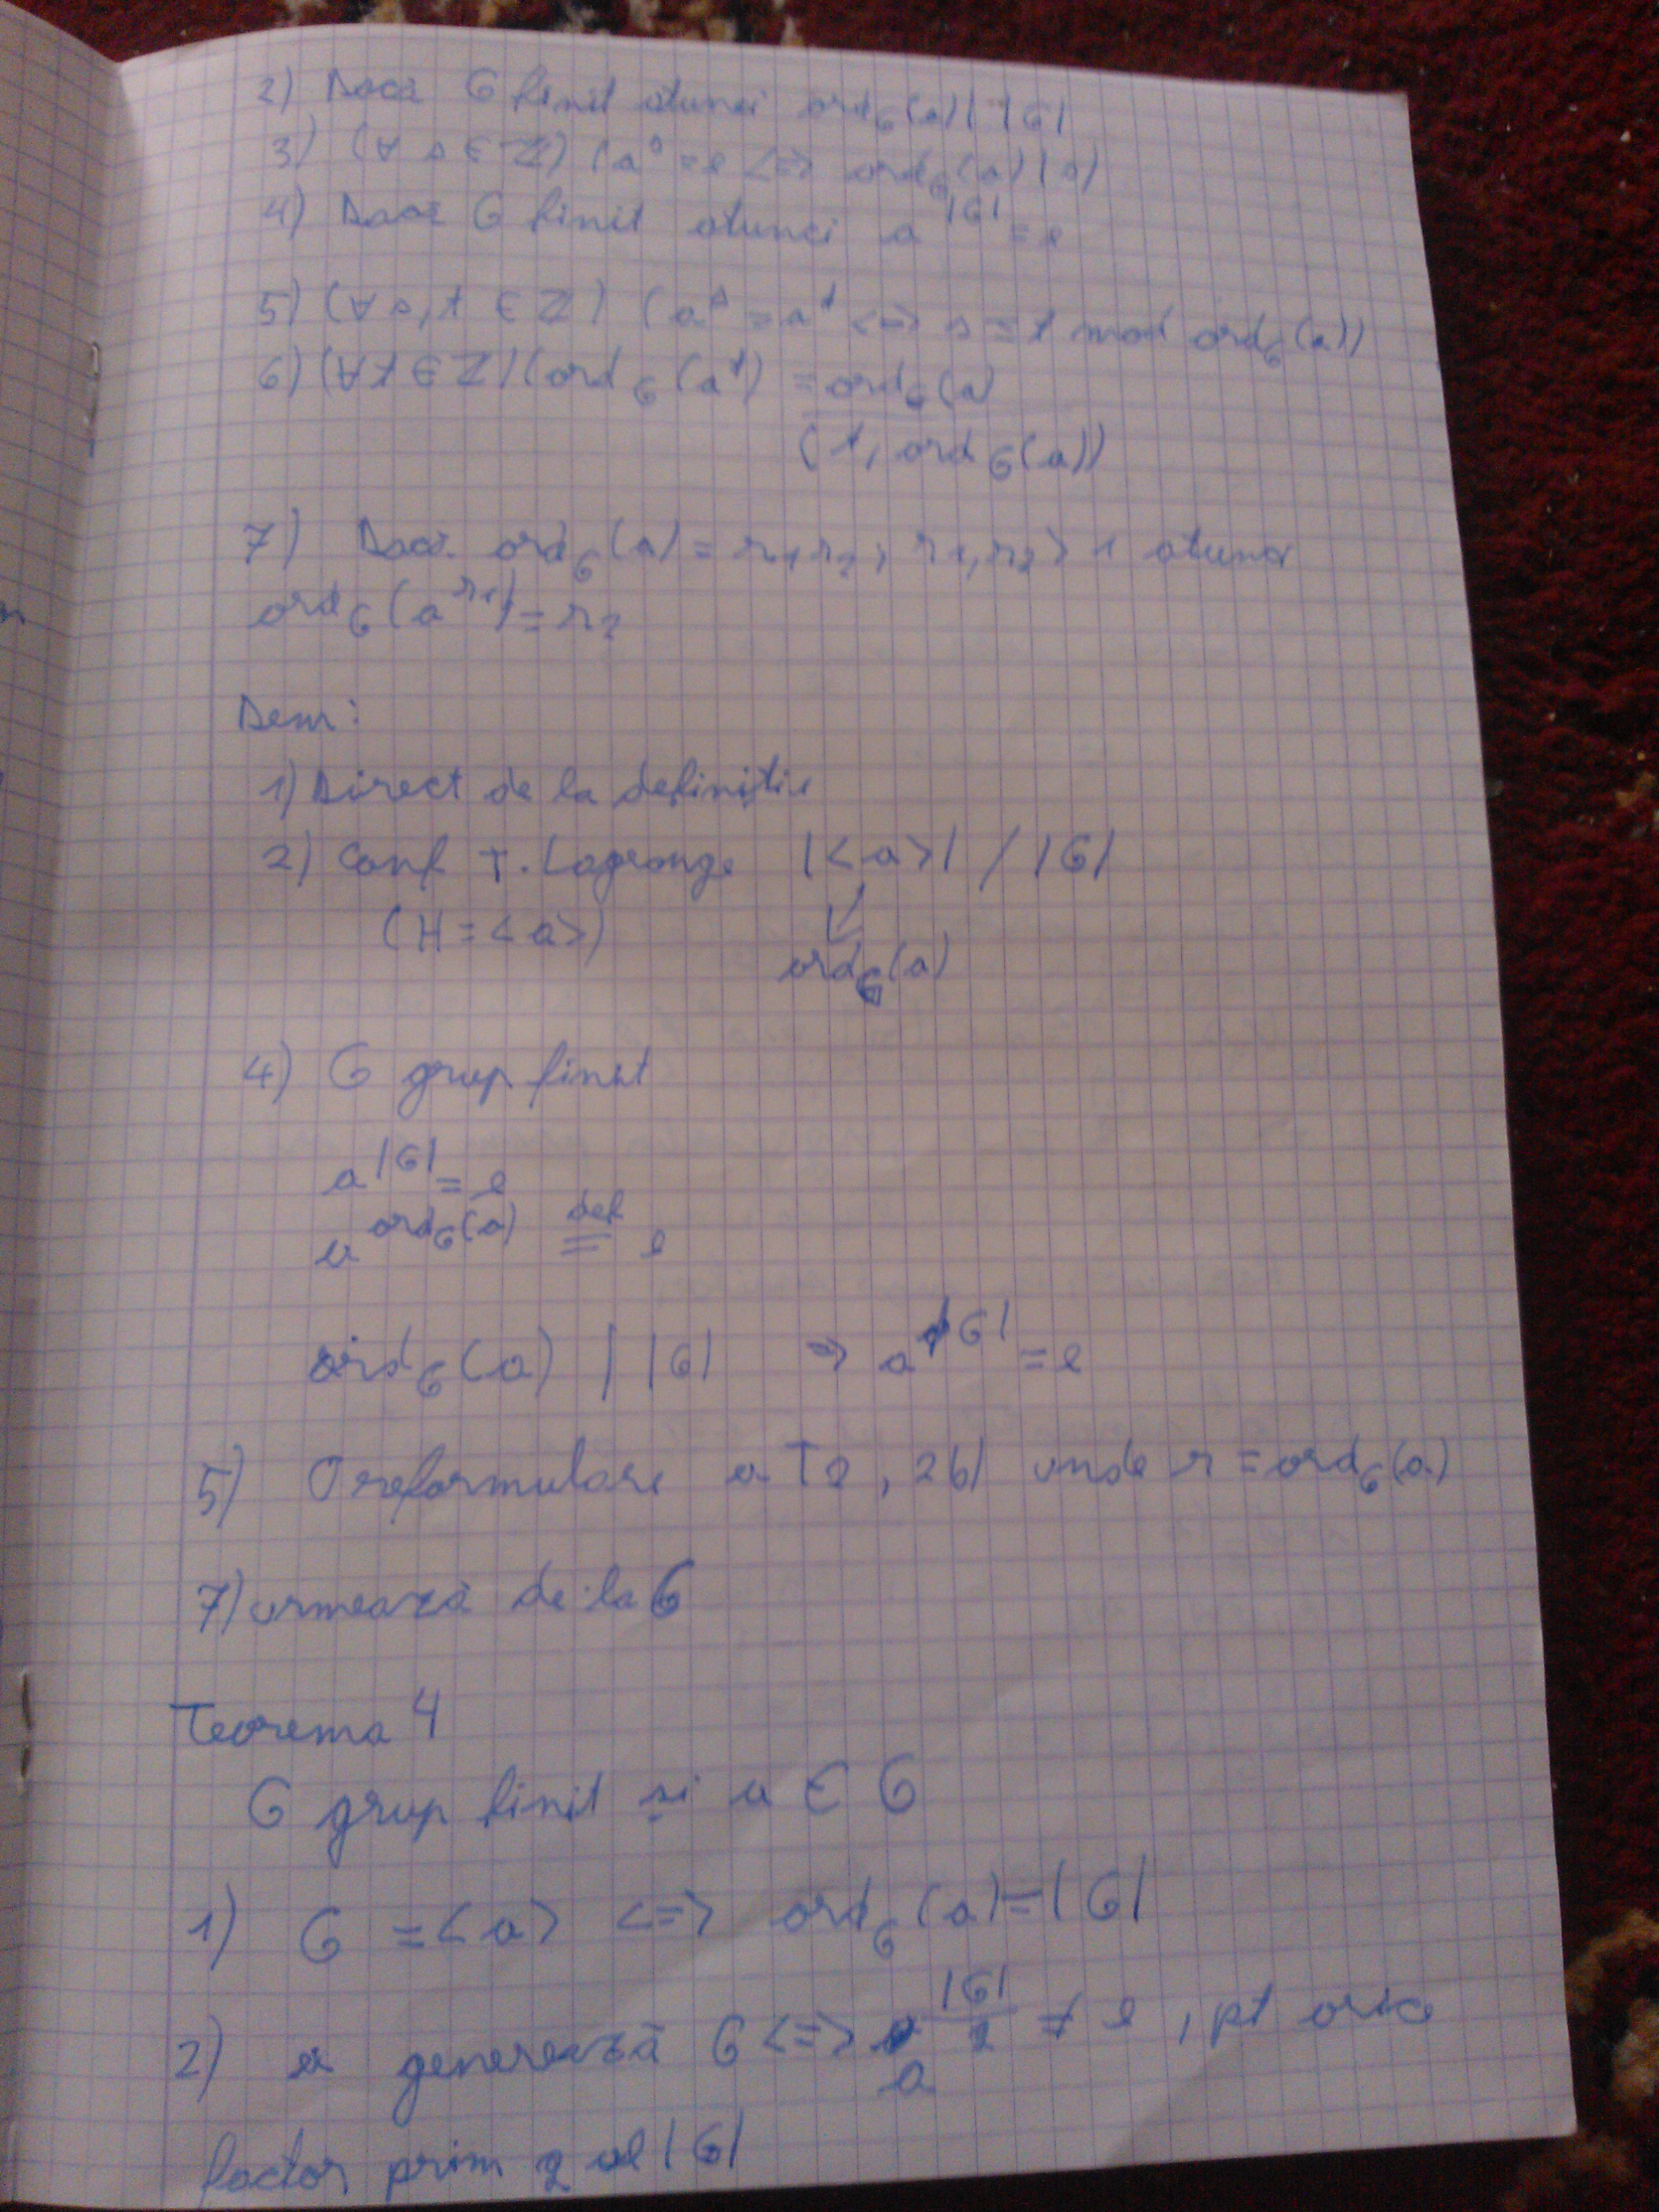 2) Dacă G finit atunci ord_G(a) | |G|
3) (∀ s ∈ ℤ) (a^s = e <=> ord_G(a) | s)
4) Dacă G finit atunci a^|G| = e
5) (∀ s,t ∈ ℤ) (a^s = a^t <=> s ≡ t mod ord_G(a))
6) (∀ t ∈ ℤ) (ord_G(a^t) = ord_G(a)
(t, ord_G(a))
7) Dacă ord_G(a) = r₁r₂, r₁,r₂ > 1 atunci
ord_G(a^r₁) = r₂
Dem:
1) Direct de la definiție
2) Conf T. Lagrange |<a>| / |G|
(H = <a>) ord_G(a)
4) G grup finit
a^|G| = e
a^ord_G(a) def= e
ord_G(a) | |G| => a^|G| = e
5) O reformulare a T2, 2b) unde r = ord_G(a)
7) urmează de la 6
Teorema 4
G grup finit și a ∈ G
1) G = <a> <=> ord_G(a) = |G|
2) a generează G <=> a^(|G|/q) ≠ e, pt orice
factor prim q al |G|